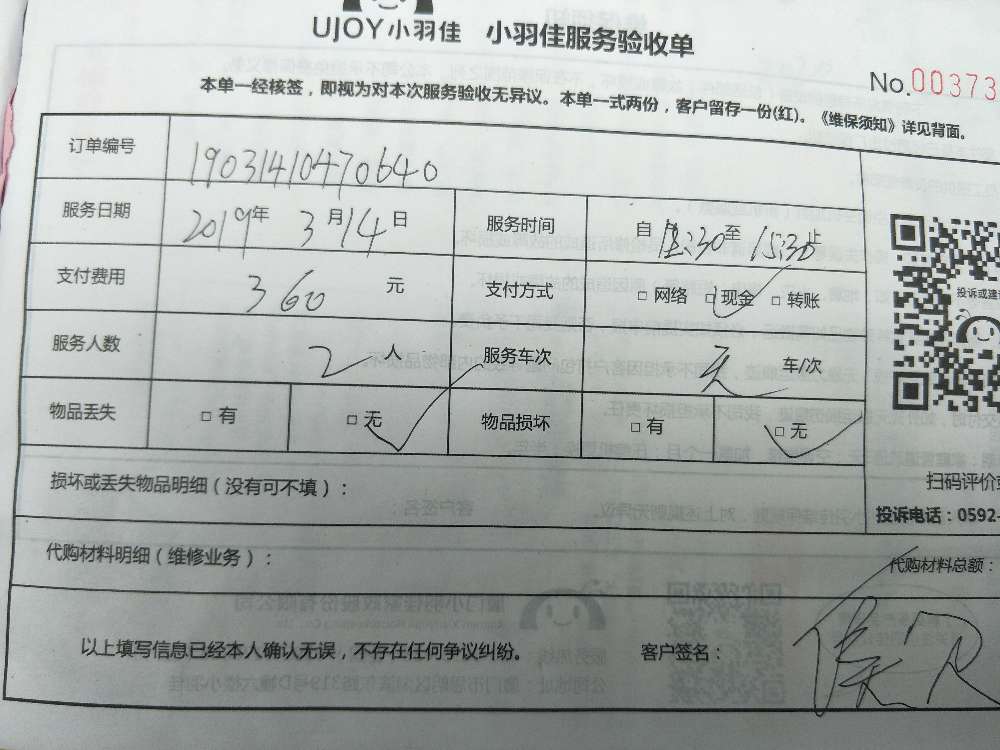 UJOY小羽佳 小羽佳服务验收单
No.00373
本单一经核签，即视为对本次服务验收无异议。本单一式两份，客户留存一份(红)。《维保须知》详见背面。
订单编号 19031410470640
服务日期 2019年 3月14日 服务时间 自 12:30至 15:30止
支付费用 360 元 支付方式 □ 网络 □ 现金 □ 转账
投诉或建
服务人数 2 人 服务车次 无 车/次
物品丢失 □ 有 □ 无 物品损坏 □ 有 □ 无
损坏或丢失物品明细（没有可不填）：
扫码评价
投诉电话：0592-
代购材料明细（维修业务）： 代购材料总额：
以上填写信息已经本人确认无误，不存在任何争议纠纷。 客户签名：